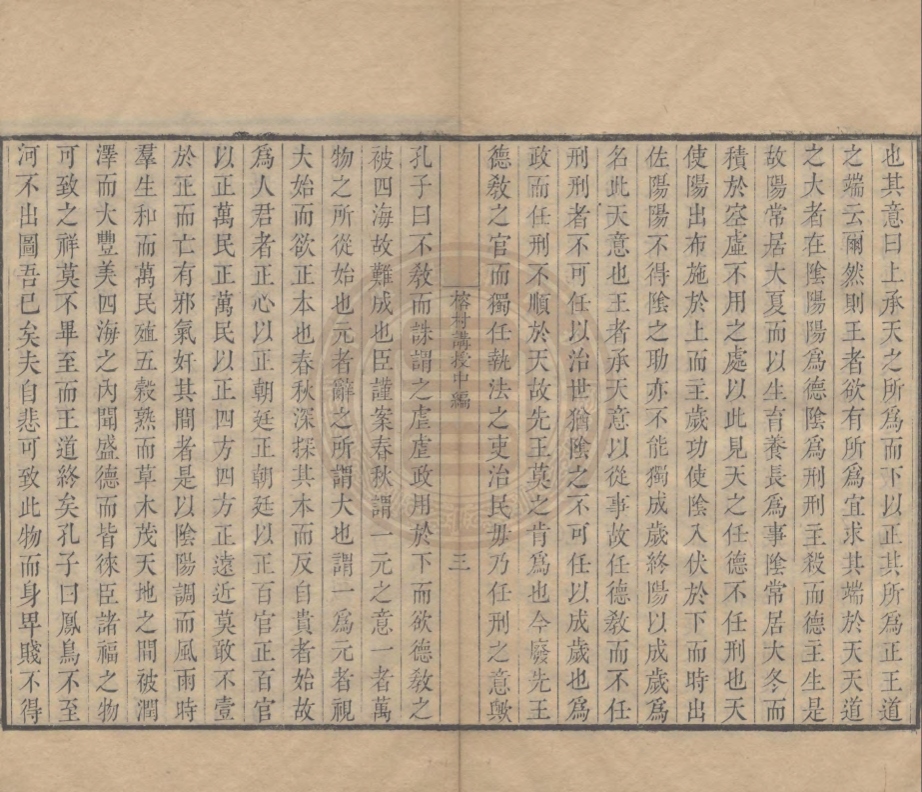 也其意曰上承天之所爲而下以正其所爲正王道
之端云爾然則王者欲有所爲宜求其端於天天道
之大者在陰陽陽爲德陰爲刑刑主殺而德主生是
故陽常居大夏而以生育養長爲事陰常居大冬而
積於空虛不用之處以此見天之任德不任刑也天
使陽出布施於上而主歲功使陰入伏於下而時出
佐陽陽不得陰之助亦不能獨成歲終陽以成歲爲
名此天意也王者承天意以從事故任德敎而不任
刑刑者不可任以治世猶陰之不可任以成歲也爲
政而任刑不順於天故先王莫之肯爲也今廢先王
德敎之官而獨任執法之吏治民毋乃任刑之意歟
榕村講授中編
三
孔子曰不敎而誅謂之虐虐政用於下而欲德敎之
被四海故難成也臣謹案春秋謂一元之意一者萬
物之所從始也元者辭之所謂大也謂一爲元者視
大始而欲正本也春秋深探其本而反自貴者始故
爲人君者正心以正朝廷正朝廷以正百官正百官
以正萬民正萬民以正四方四方正遠近莫敢不壹
於正而亡有邪氣奸其間者是以陰陽調而風雨時
羣生和而萬民殖五穀熟而草木茂天地之間被潤
澤而大豐美四海之內聞盛德而皆徠臣諸福之物
可致之祥莫不畢至而王道終矣孔子曰鳳鳥不至
河不出圖吾已矣夫自悲可致此物而身卑賤不得